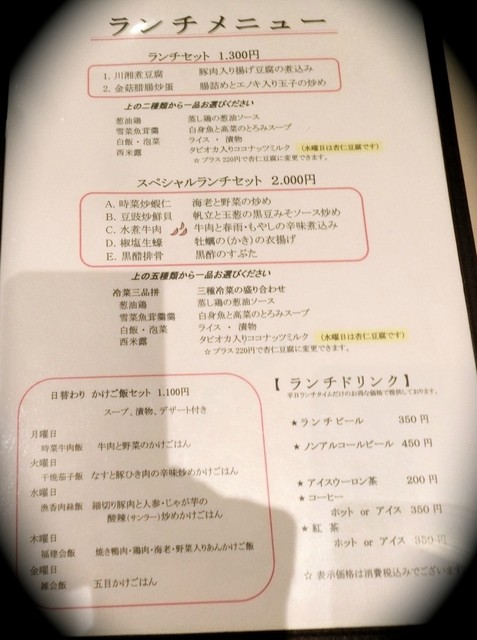 ランチメニュー
ランチセット 1.300円
1. 川湘煮豆腐 豚肉入り揚げ豆腐の煮込み
2. 金菇腊腸炒蛋 腸詰めとエノキ入り玉子の炒め
上の二種類から一品お選びください
葱油鶏 蒸し鶏の葱油ソース
雪菜魚茸羹 白身魚と高菜のとろみスープ
白飯・泡菜 ライス ・ 漬物
西米露 タピオカ入りココナッツミルク (水曜日は杏仁豆腐です)
☆プラス220円で杏仁豆腐に変更できます。
スペシャルランチセット 2.000円
A. 時菜炒蝦仁 海老と野菜の炒め
B. 豆豉炒鮮貝 帆立と玉葱の黒豆みそソース炒め
C. 水煮牛肉 牛肉と春雨・もやしの辛味煮込み
D. 椒塩生蠔 牡蠣の(かき)の衣揚げ
E. 黒醋排骨 黒酢のすぶた
上の五種類から一品お選びください
冷菜三品拼 三種冷菜の盛り合わせ
葱油鶏 蒸し鶏の葱油ソース
雪菜魚茸羹羹 白身魚と高菜のとろみスープ
白飯・泡菜 ライス ・ 漬物
西米露 タピオカ入りココナッツミルク (水曜日は杏仁豆腐です)
☆プラス220円で杏仁豆腐に変更できます。
日替わり かけご飯セット 1.100円
スープ、漬物、デザート付き
月曜日
時菜牛肉飯 牛肉と野菜のかけごはん
火曜日
干焼茄子飯 なすと豚ひき肉の辛味炒めかけごはん
水曜日
漁香肉絲飯 細切り豚肉と人参・じゃが芋の
酸辣(サンラー)炒めかけごはん
木曜日
福建会飯 焼き鴨肉・鶏肉・海老・野菜入りあんかけご飯
金曜日
雑会飯 五目かけごはん
【 ランチドリンク】
平日ランチタイムだけのお得な価格で提供しております。
★ランチビール 350円
★ノンアルコールビール 450円
★アイスウーロン茶 200円
★コーヒー
ホット or アイス 350円
★紅 茶
ホット or アイス 350円
☆ 表示価格は消費税込みでございま